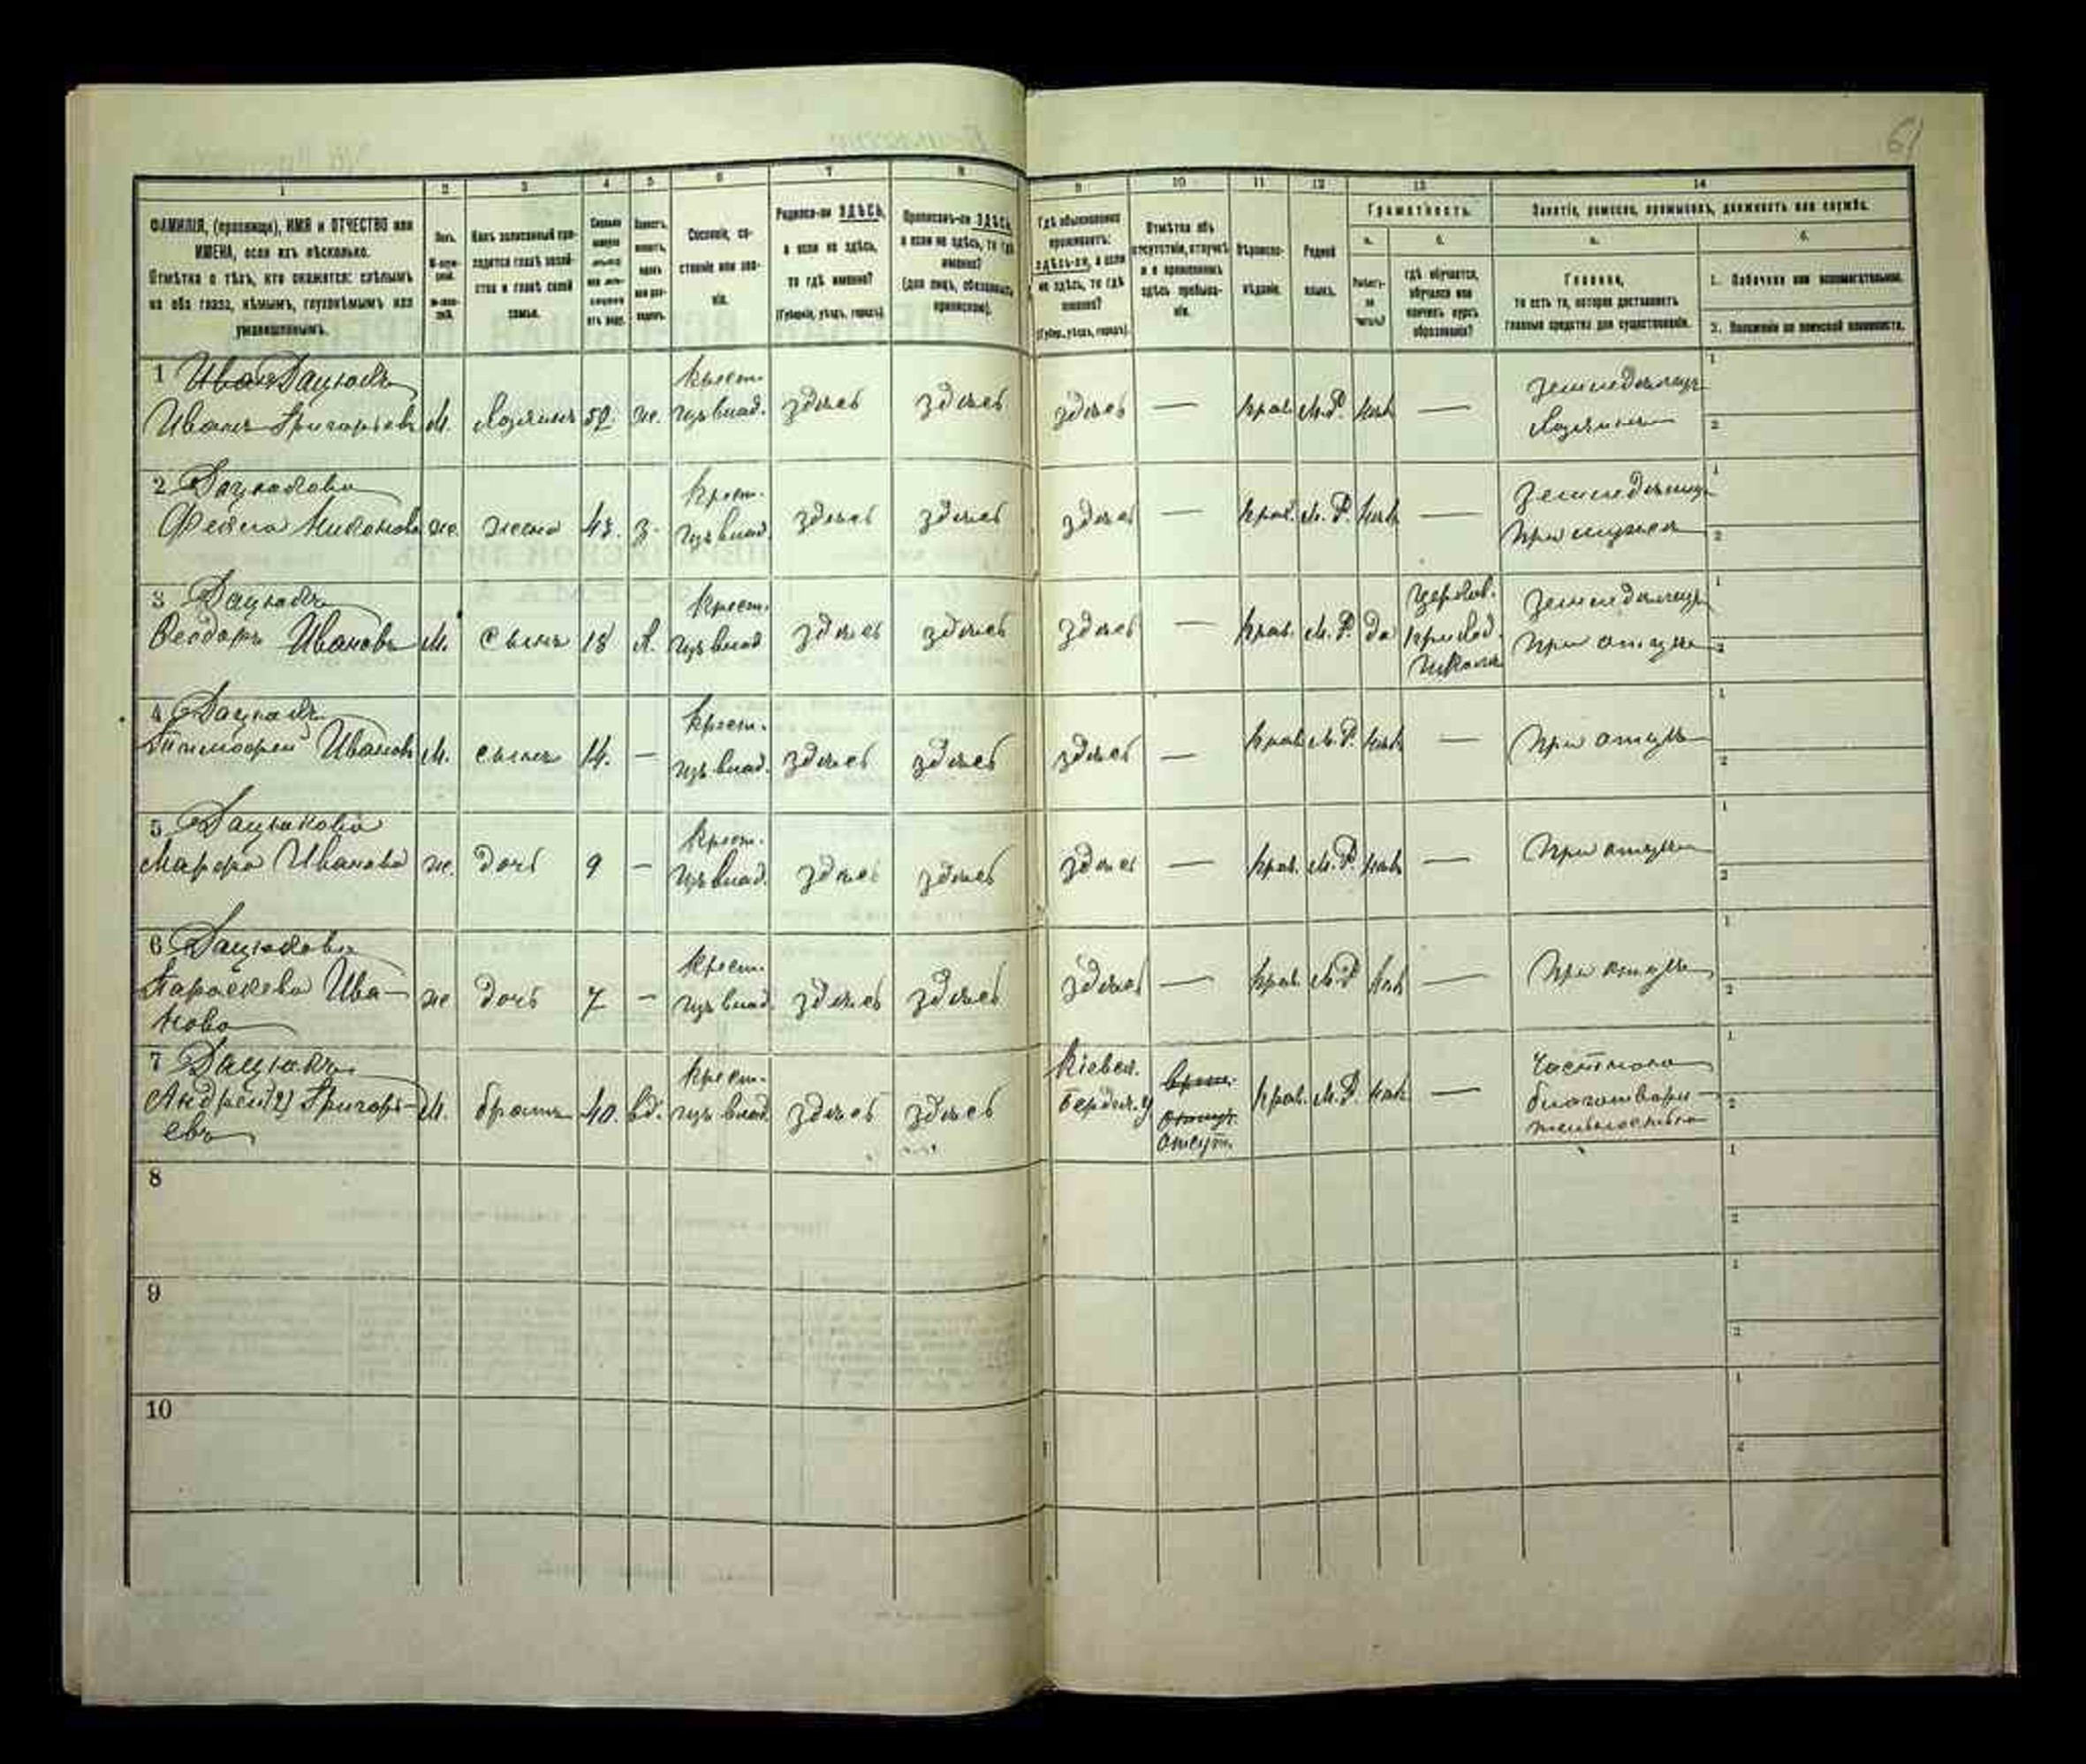 61
1 2 3 4 5 6 7 8 9 10 11 12 13 14
ФАМИЛІЯ, (прозвище), ИМЯ и ОТЧЕСТВО или
ИМЕНА, если ихъ нѣсколько.
Отмѣтка о тѣхъ, кто окажется: слѣпымъ
на оба глаза, нѣмымъ, глухонѣмымъ или
умалишеннымъ.
Полъ.
Какъ записанный при-
ходится главѣ хозяй-
ства и главѣ своей
семьи.
Сословіе, со-
стояніе или зва-
ніе.
Родился-ли ЗДѢСЬ,
а если не здѣсь,
то гдѣ именно?
(Губернія, уѣздъ, городъ)
Приписанъ-ли ЗДѢСЬ,
а если не здѣсь, то гдѣ
именно?
(для лицъ, обязанныхъ
припиской).
Гдѣ обыкновенно
проживаетъ:
здѣсь-ли, а если
не здѣсь, то гдѣ
именно?
(Губер., уѣздъ, городъ)
Отмѣтка объ
отсутствіи, отлучкѣ
и о временномъ
здѣсь пребыва-
ніи.
Вѣроиспо-
вѣданіе.
Родной
языкъ.
Грамотность.
а. б.
гдѣ обучается,
обучался или
кончилъ курсъ
образованія?
Занятіе, ремесло, промыселъ, должность или служба.
а. б.
Главное,
то есть то, которое доставляетъ
главныя средства для существованія.
1. Побочное или вспомогательное.
2. Положеніе по воинской повинности.
1 Иван Дацюкъ
Иванъ Григорьевъ М. Хозяинъ 52. ж. Крест. изъ влад. здѣсь здѣсь здѣсь — прав. М.Р. нѣт — Земледѣлецъ
Хозяинъ
2 Дацюкова
Фекла Никонова ж. жена 43. з. Крест. изъ влад. здѣсь здѣсь здѣсь — прав. М.Р. нѣт — Земледѣлец
При мужѣ
3 Дацюкъ
Ѳеодоръ Ивановъ М. сынъ 18 х. Крест. изъ влад. здѣсь здѣсь здѣсь — прав. М.Р. да церков. приход. школѣ Земледѣлец
при отцѣ
4 Дацюкъ
Тимофей Иванов М. сынъ 14. — Крест. изъ влад. здѣсь здѣсь здѣсь — прав. М.Р. нѣт — при отцѣ
5 Дацюкова
Марфа Иванова ж. дочь 9 — Крест. изъ влад. здѣсь здѣсь здѣсь — прав. М.Р. нѣт — при отцѣ
6 Дацюкова
Параскева Ива-
нова ж дочь 7 — Крест. изъ влад. здѣсь здѣсь здѣсь — прав. М.Р нѣт — При отцѣ
7 Дацюкъ
Андрей (2) Григорь-
евъ М. братъ 40. вд. Крест. изъ влад. здѣсь здѣсь Кіевск. Бердич. у отсут. прав. М.Р. нѣт — Частною
благотвори-
тельностью
8
9
10